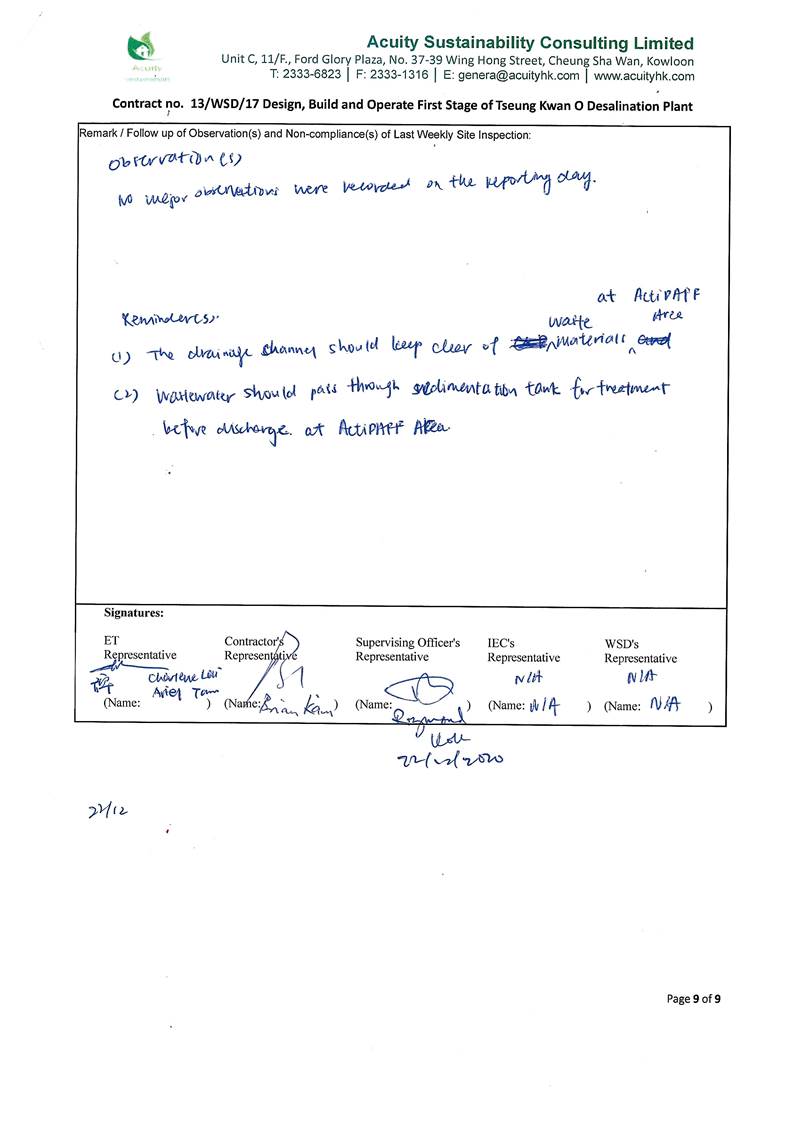 Acuity Sustainability Consulting Limited
Unit C, 11/F., Ford Glory Plaza, No. 37-39 Wing Hong Street, Cheung Sha Wan, Kowloon
T: 2333-6823 | F: 2333-1316 | E: genera@acuityhk.com | www.acuityhk.com
Acuity
Contract no. 13/WSD/17 Design, Build and Operate First Stage of Tseung Kwan O Desalination Plant
Remark / Follow up of Observation(s) and Non-compliance(s) of Last Weekly Site Inspection:
Observation(s)
No major observations were recorded on the reporting day.
Reminder(s):
(1) The drainage channel should keep clear of waste materials at ActiDAFF Area
(2) Wastewater should pass through sedimentation tank for treatment
before discharge. at ActiDAFF Area
Signatures:
ET Representative
Contractor's Representative
Supervising Officer's Representative
IEC's Representative
WSD's Representative
Charlene Lau
Ariel Tam
N/A
N/A
(Name: )
(Name: Brian Kam)
(Name: Raymond )
(Name: N/A )
(Name: N/A )
22/12/2020
22/12
Page 9 of 9